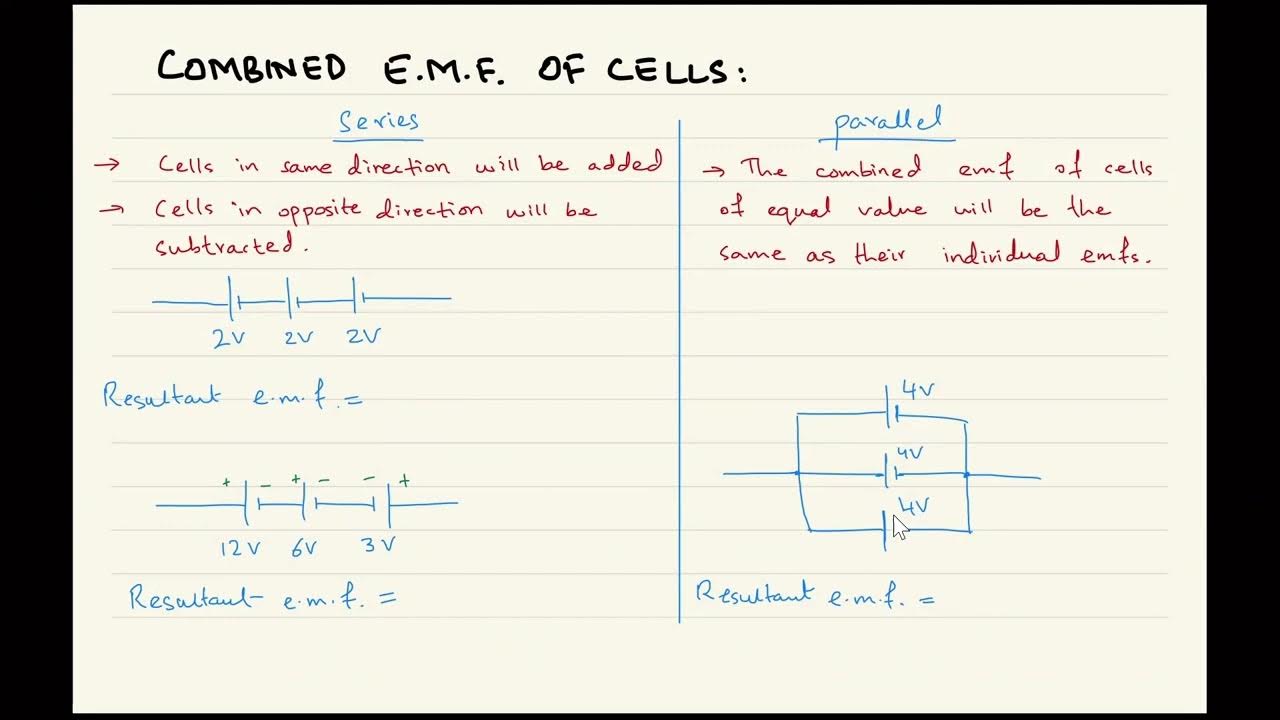 COMBINED E.M.F. OF CELLS:
Series
→ Cells in same direction will be added
→ Cells in opposite direction will be
subtracted.
2V 2V 2V
Resultant e.m.f. =
+ − + − − +
12V 6V 3V
Resultant e.m.f. =
parallel
→ The combined emf of cells
of equal value will be the
same as their individual emfs.
4V
4V
4V
Resultant e.m.f. =